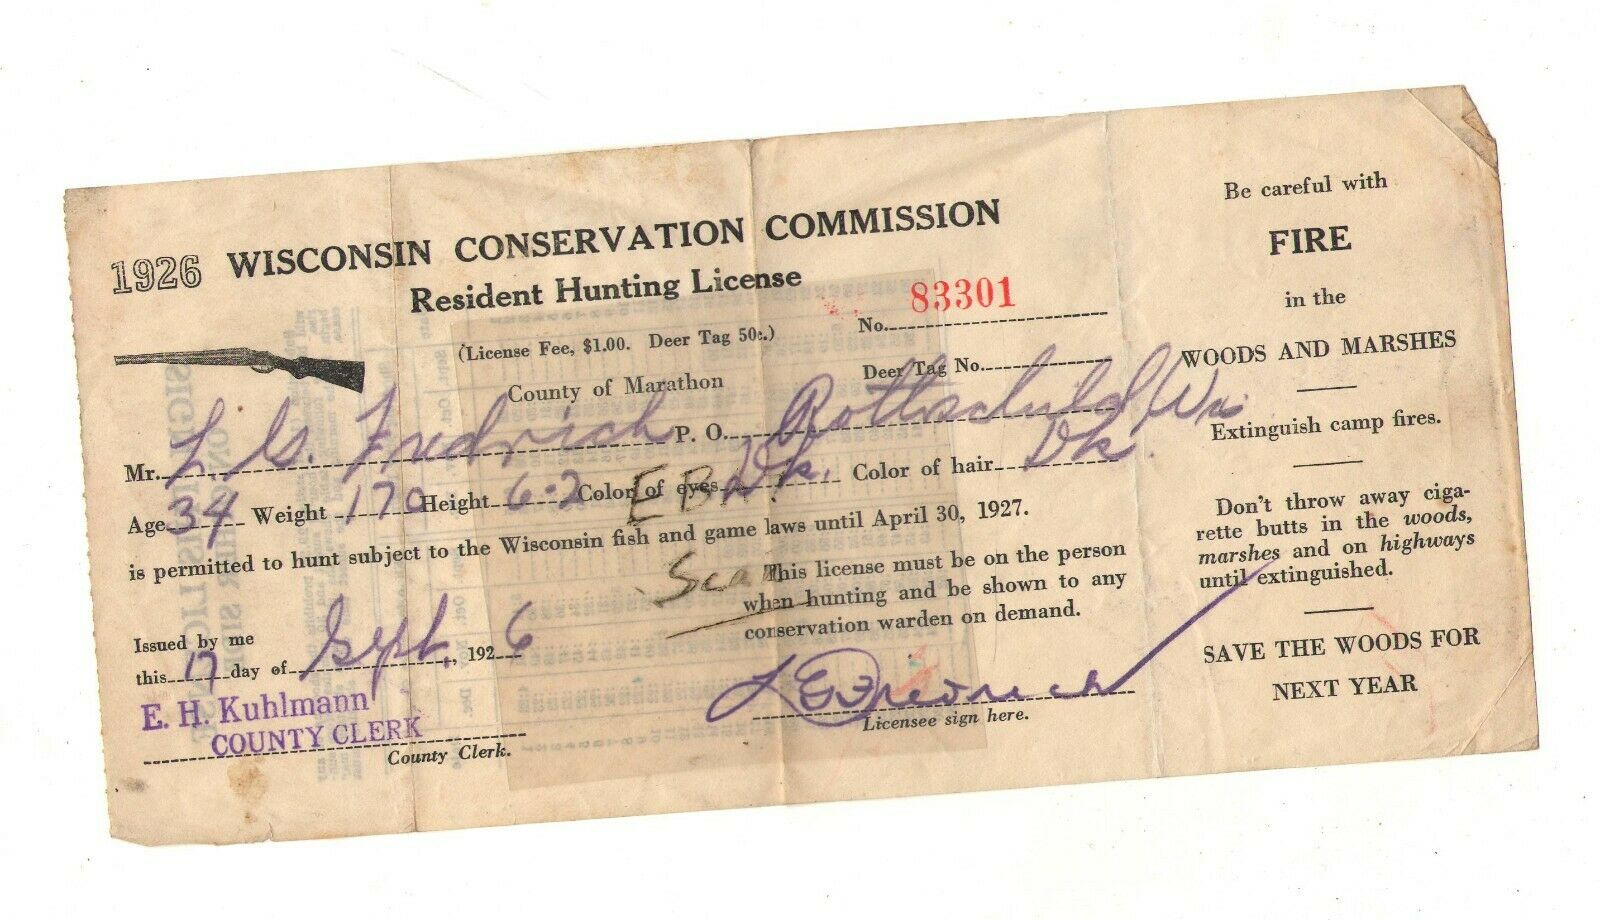 1926 WISCONSIN CONSERVATION COMMISSION
Resident Hunting License
No. 83301
(License Fee, $1.00. Deer Tag 50c.)
County of Marathon
Deer Tag No.
Mr. L. G. Fredrich P. O. Rothschild Wis
Age 34 Weight 170 Height 6-2 Color of eyes Dk. Color of hair Dk.
is permitted to hunt subject to the Wisconsin fish and game laws until April 30, 1927.
This license must be on the person
when hunting and be shown to any
conservation warden on demand.
Issued by me
this 17 day of Sept., 1926
E. H. Kuhlmann
COUNTY CLERK
County Clerk.
Licensee sign here.
Be careful with
FIRE
in the
WOODS AND MARSHES
Extinguish camp fires.
Don't throw away ciga-
rette butts in the woods,
marshes and on highways
until extinguished.
SAVE THE WOODS FOR
NEXT YEAR